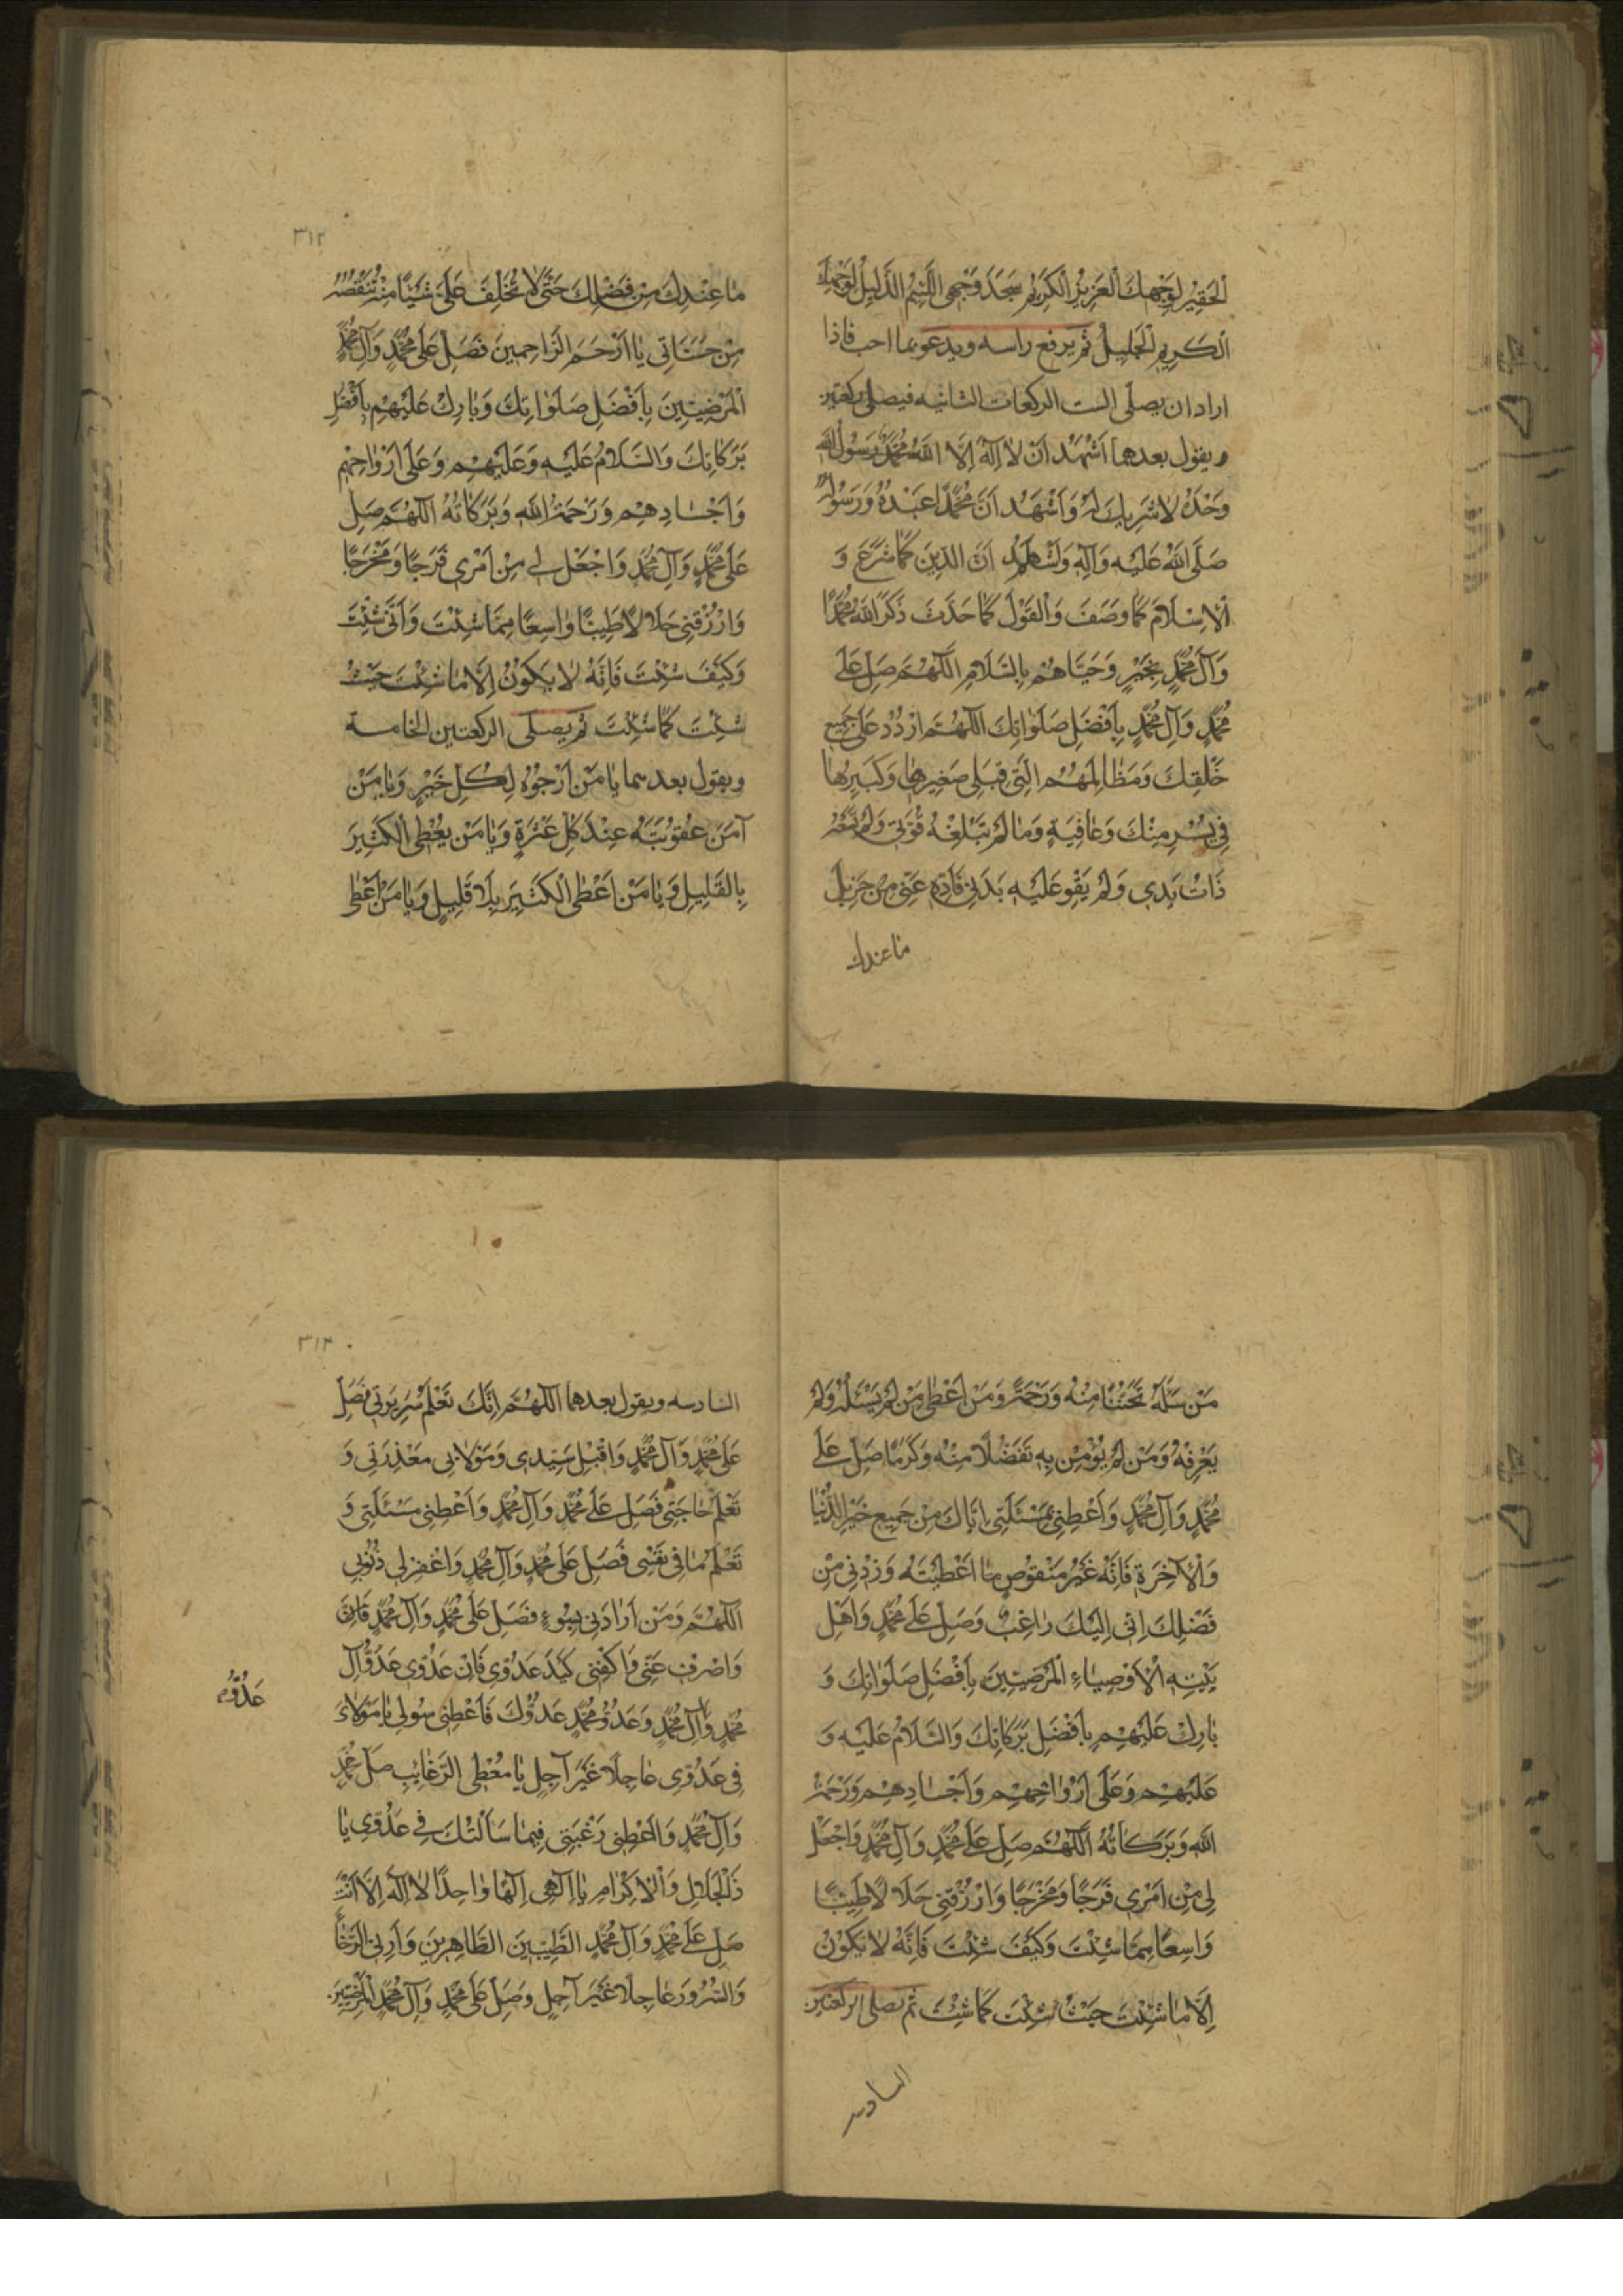 الْحَقِيْرِ لِوَجْهِكَ الْعَزِيْزِ الْكَرِيْمِ سَجَدَ وَجْهِىَ اللَّئِيْمُ الذَّلِيْلُ لِوَجْهِكَ
الْكَرِيمِ الْجَلِيلِ ثم يرفع راسه ويدعو بما احب فاذا
اراد ان يصلى الست الركعات الثانيه فيصلى ركعتين
ويقول بعدهما اَشْهَدُ اَنْ لاٰ اِلٰهَ اِلَّا اللهُ مُحَمَّدٌ رَسُولُ اللهِ
وَحْدَهُ لاٰ شَرِيكَ لَهُ وَاَشْهَدُ اَنَّ مُحَمَّدًا عَبْدُهُ وَرَسُولُهُ
صَلَّى اللهُ عَلَيْهِ وَآلِهِ وَاَشْهَدُ اَنَّ الدِّينَ كَمٰا شَرَعَ وَ
الْاِسْلاٰمَ كَمٰا وَصَفَ وَالْقَوْلَ كَمٰا حَدَّثَ ذَكَرَ اللهُ مُحَمَّدًا
وَآلَ مُحَمَّدٍ بِخَيْرٍ وَحَيّٰاهُمْ بِالسَّلاٰمِ اَللّٰهُمَّ صَلِّ عَلٰى
مُحَمَّدٍ وَآلِ مُحَمَّدٍ بِاَفْضَلِ صَلَوٰاتِكَ اَللّٰهُمَّ ارْدُدْ عَلٰى جَمِيعِ
خَلْقِكَ وَمَظٰالِمَهُمُ الَّتِى قِبَلِى صَغِيرِهٰا وَكَبِيرِهٰا
فِى يُسْرٍ مِنْكَ وَعٰافِيَةٍ وَمٰا لَمْ تَبْلُغْهُ قُوَّتِى وَلَمْ تَسَعْهُ
ذٰاتُ يَدِى وَلَمْ يَقْوِ عَلَيْهِ بَدَنِى فَاَدِّهِ عَنِّى مِنْ جَزِيلِ
مٰا عندك
٣١٢
مٰا عِنْدِكَ مِنْ فَضْلِكَ حَتّٰى لاٰ تُخَلِّفَ عَلَىَّ شَيْئًا مِنْهُ تَنْقُصُهُ
مِنْ حَسَنٰاتِى يٰا اَرْحَمَ الرّٰاحِمِينَ فَصَلِّ عَلٰى مُحَمَّدٍ وَآلِ مُحَمَّدٍ
الْمَرْضِيِّينَ بِاَفْضَلِ صَلَوٰاتِكَ وَبٰارِكْ عَلَيْهِمْ بِاَفْضَلِ
بَرَكٰاتِكَ وَالسَّلاٰمُ عَلَيْهِ وَعَلَيْهِمْ وَعَلٰى اَرْوٰاحِهِمْ
وَاَجْسٰادِهِمْ وَرَحْمَةُ اللهِ وَبَرَكٰاتُهُ اَللّٰهُمَّ صَلِّ
عَلٰى مُحَمَّدٍ وَآلِ مُحَمَّدٍ وَاجْعَلْ لِى مِنْ اَمْرِى فَرَجًا وَمَخْرَجًا
وَارْزُقْنِى حَلاٰلاً طَيِّبًا وٰاسِعًا مِمّٰا شِئْتَ وَاَنّٰى شِئْتَ
وَكَيْفَ شِئْتَ فَاِنَّهُ لاٰ يَكُوْنُ اِلَّا مٰا شِئْتَ حَيْثُ
شِئْتَ كَمٰا شِئْتَ ثم يصلى الركعتين الخامسة
ويقول بعدهما يٰا مَنْ اَرْجُوْهُ لِكُلِّ خَيْرٍ وَيٰا مَنْ
آمَنَ عُقُوبَتَهُ عِنْدَ كُلِّ عَثْرَةٍ وَيٰا مَنْ يُعْطِى الْكَثِيرَ
بِالْقَلِيلِ وَيٰا مَنْ اَعْطَى الْكَثِيرَ بِلاَ قَلِيلٍ وَيٰا مَنْ اَعْطٰى
مَنْ سَئَلَهُ تَحَنُّنًا مِنْهُ وَرَحْمَةً وَمَنْ اَعْطٰى مَنْ لَمْ يَسْئَلْهُ وَلَمْ
يَعْرِفْهُ وَمَنْ لَمْ يُؤْمِنْ بِهِ تَفَضُّلاً مِنْهُ وَكَرَمًا صَلِّ عَلٰى
مُحَمَّدٍ وَآلِ مُحَمَّدٍ وَاَعْطِنِى بِمَسْئَلَتِى اِيّٰاكَ مِنْ جَمِيعِ خَيْرِ الدُّنْيٰا
وَالْآخِرَةِ فَاِنَّهُ غَيْرُ مَنْقُوصٍ مٰا اَعْطَيْتَهُ وَزِدْنِى مِنْ
فَضْلِكَ اِنِّى اِلَيْكَ رٰاغِبٌ وَصَلِّ عَلٰى مُحَمَّدٍ وَاَهْلِ
بَيْتِهِ الْاَوْصِيٰاءِ الْمَرْضِيِّينَ بِاَفْضَلِ صَلَوٰاتِكَ وَ
بٰارِكْ عَلَيْهِمْ بِاَفْضَلِ بَرَكٰاتِكَ وَالسَّلاٰمُ عَلَيْهِ وَ
عَلَيْهِمْ وَعَلٰى اَرْوٰاحِهِمْ وَاَجْسٰادِهِمْ وَرَحْمَةُ
اللهِ وَبَرَكٰاتُهُ اَللّٰهُمَّ صَلِّ عَلٰى مُحَمَّدٍ وَآلِ مُحَمَّدٍ وَاجْعَلْ
لِى مِنْ اَمْرِى فَرَجًا وَمَخْرَجًا وَارْزُقْنِى حَلاٰلاً طَيِّبًا
وٰاسِعًا مِمّٰا شِئْتَ وَكَيْفَ شِئْتَ فَاِنَّهُ لاٰ يَكُوْنُ
اِلَّا مٰا شِئْتَ حَيْثُ شِئْتَ كَمٰا شِئْتَ ثم يصلى الركعتين
السادسه
٣١٣
السادسه ويقول بعدهما اَللّٰهُمَّ اِنَّكَ تَعْلَمُ سَرِيرَتِى فَصَلِّ
عَلٰى مُحَمَّدٍ وَآلِ مُحَمَّدٍ وَاقْبَلْ سَيِّدِى وَمَوْلاٰىَ مَعْذِرَتِى وَ
تَعْلَمُ حٰاجَتِى فَصَلِّ عَلٰى مُحَمَّدٍ وَآلِ مُحَمَّدٍ وَاَعْطِنِى مَسْئَلَتِى وَ
تَعْلَمُ مٰا فِى نَفْسِى فَصَلِّ عَلٰى مُحَمَّدٍ وَآلِ مُحَمَّدٍ وَاغْفِرْ لِى ذُنُوبِى
اَللّٰهُمَّ وَمَنْ اَرٰادَنِى بِسُوْءٍ فَصَلِّ عَلٰى مُحَمَّدٍ وَآلِ مُحَمَّدٍ
وَاصْرِفْ عَنِّى وَاكْفِنِى كَيْدَ عَدُوِّى فَاِنَّ عَدُوِّى عَدُوُّ آلِ
مُحَمَّدٍ وَآلِ مُحَمَّدٍ وَعَدُوُّ مُحَمَّدٍ عَدُوُّكَ فَاَعْطِنِى سُؤْلِى يٰا مَوْلاٰىَ
عَدُوُّ
فِى عَدُوِّى عٰاجِلاً غَيْرَ آجِلٍ يٰا مُعْطِىَ الرَّغٰايِبِ صَلِّ مُحَمَّدٍ
وَآلِ مُحَمَّدٍ وَاَعْطِنِى رَغْبَتِى فِيمٰا سَاَلْتُكَ فِى عَدُوِّى يٰا
ذَاالْجَلاٰلِ وَالْاِكْرٰامِ يٰا اِلٰهِى اِلٰهًا وٰاحِدًا لاٰ اِلٰهَ اِلَّا اَنْتَ
صَلِّ عَلٰى مُحَمَّدٍ وَآلِ مُحَمَّدٍ الطَّيِّبِينَ الطّٰاهِرِينَ وَاَرِنِى الرَّخٰاءَ
وَالسُّرُورَ عٰاجِلاً غَيْرَ آجِلٍ وَصَلِّ عَلٰى مُحَمَّدٍ وَآلِ مُحَمَّدٍ الْمَرْضِيِّينَ